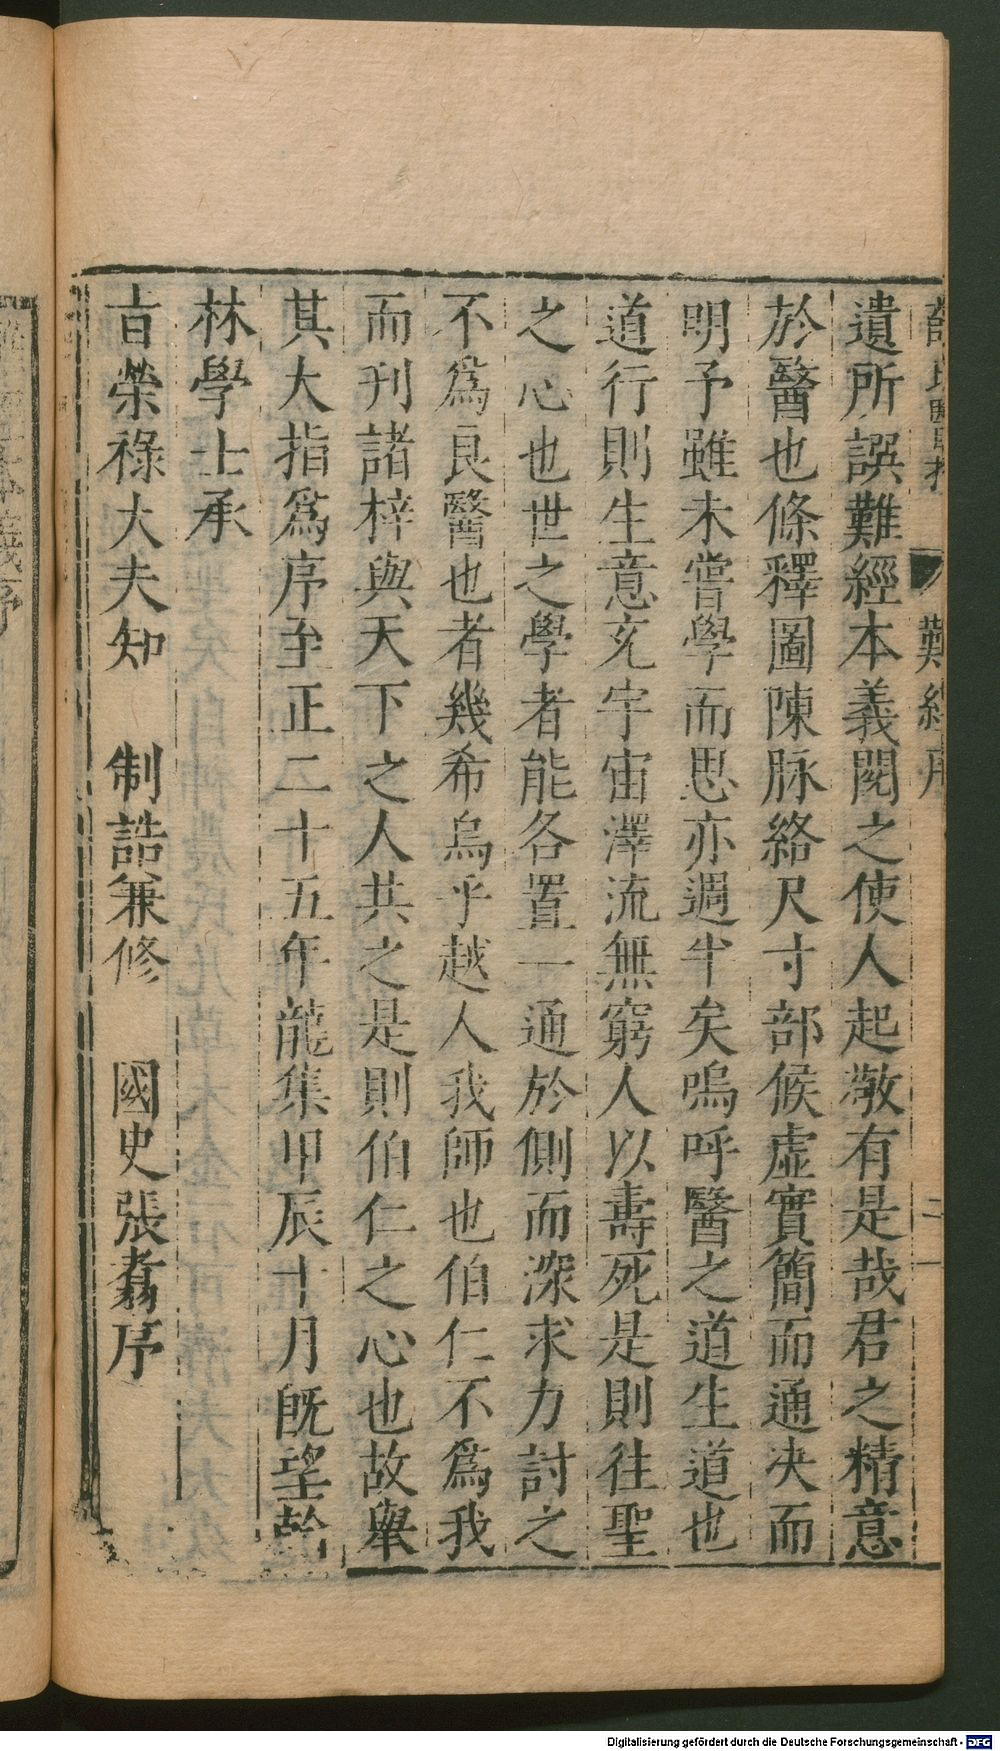 難經序
二
遺所誤難經本義閱之使人起敬有是哉君之精意
於醫也條釋圖陳脉絡尺寸部候虛實簡而通決而
明予雖未嘗學而思亦過半矣嗚呼醫之道生道也
道行則生意充宇宙澤流無窮人以壽死是則往聖
之心也世之學者能各置一通於側而深求力討之
不爲良醫也者幾希烏乎越人我師也伯仁不爲我
而刋諸梓與天下之人共之是則伯仁之心也故舉
其大指爲序至正二十五年龍集甲辰十月旣望翰
林學士承
旨榮祿大夫知 制誥兼修 國史張翥序
Digitalisierung gefördert durch die Deutsche Forschungsgemeinschaft - DFG